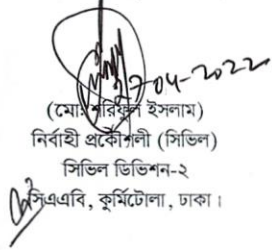 27-04-2022
(মোঃ শরিফুল ইসলাম)
নির্বাহী প্রকৌশলী (সিভিল)
সিভিল ডিভিশন-২
সিএএবি, কুর্মিটোলা, ঢাকা।